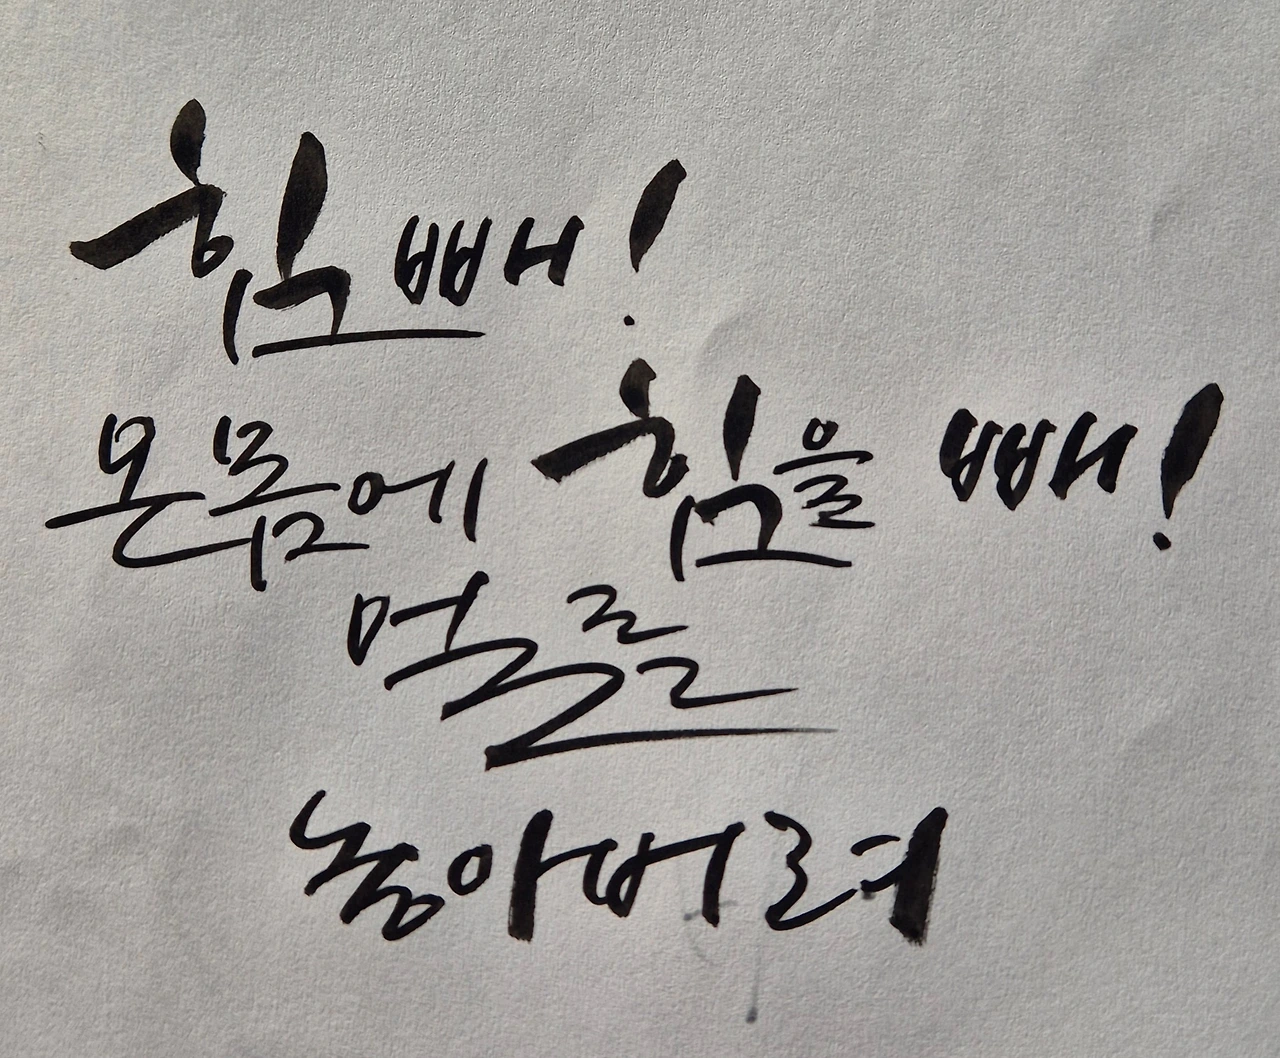 힘 빼!
온몸에 힘을 빼!
멱클
놓아버려